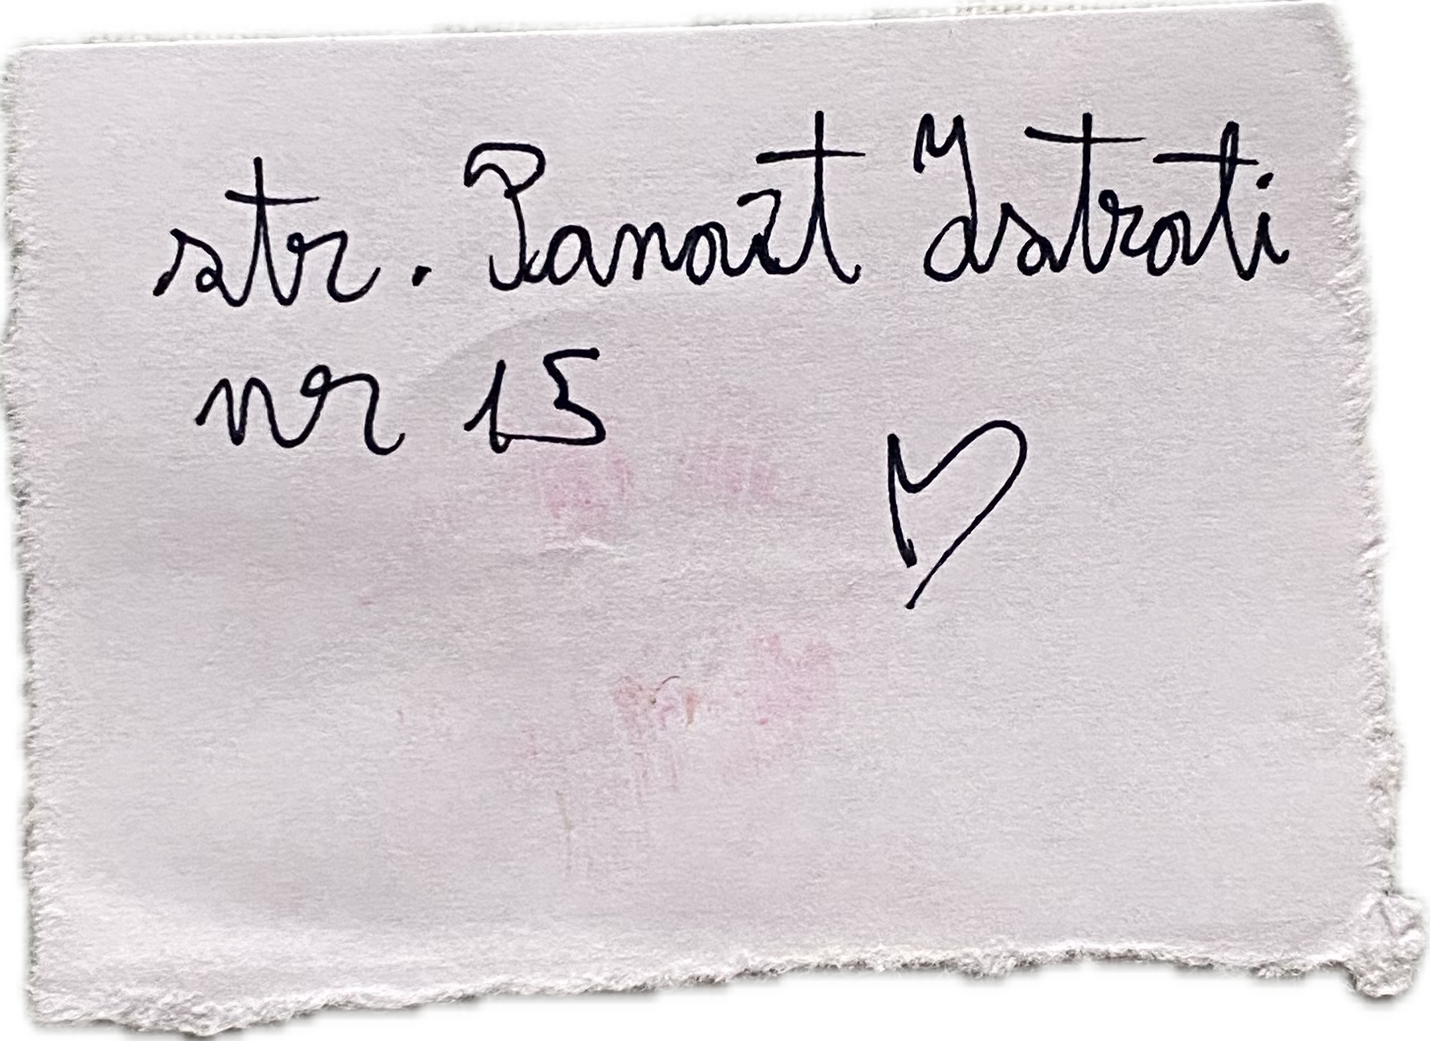 str. Panait Istrati
nr 15